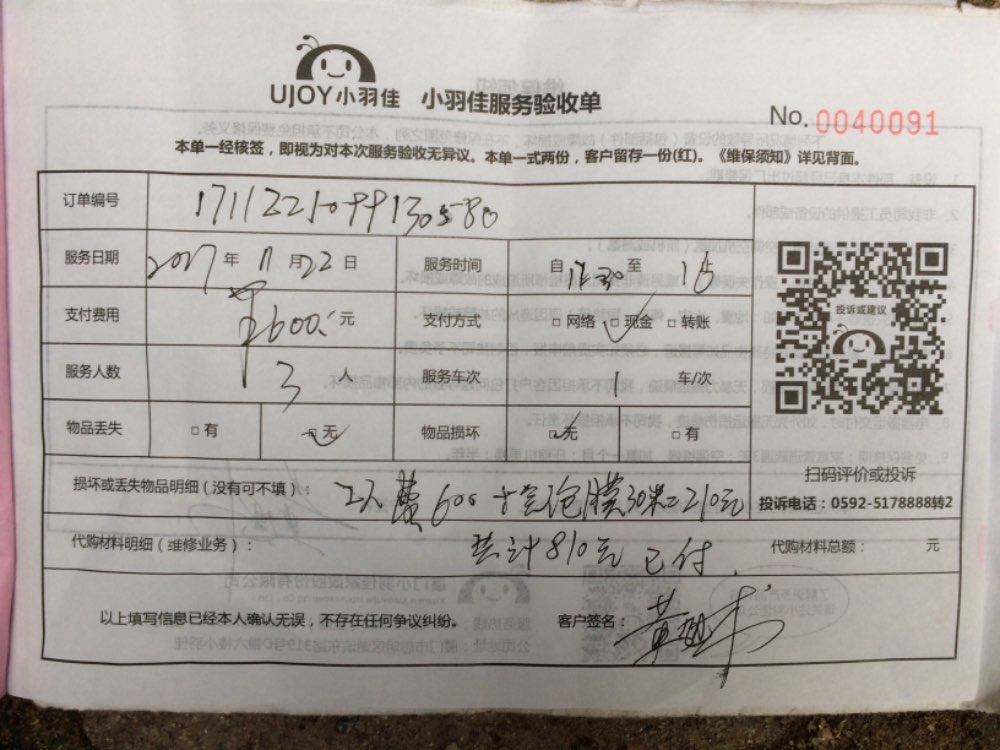 UJOY小羽佳 小羽佳服务验收单
No. 0040091
本单一经核签，即视为对本次服务验收无异议。本单一式两份，客户留存一份(红)。《维保须知》详见背面。
订单编号
服务日期 2017 年 11 月 22 日 服务时间 自 至
支付费用 ¥600. 元 支付方式 □网络 □现金 □转账
投诉或建议
服务人数 3 人 服务车次 1 车/次
物品丢失 □有 □无 物品损坏 □无 □有
扫码评价或投诉
损坏或丢失物品明细（没有可不填）： 600 + 气泡膜30米=210元
投诉电话：0592-5178888转2
代购材料明细（维修业务）： 共计810元 已付. 代购材料总额： 元
以上填写信息已经本人确认无误，不存在任何争议纠纷。 客户签名： 黄